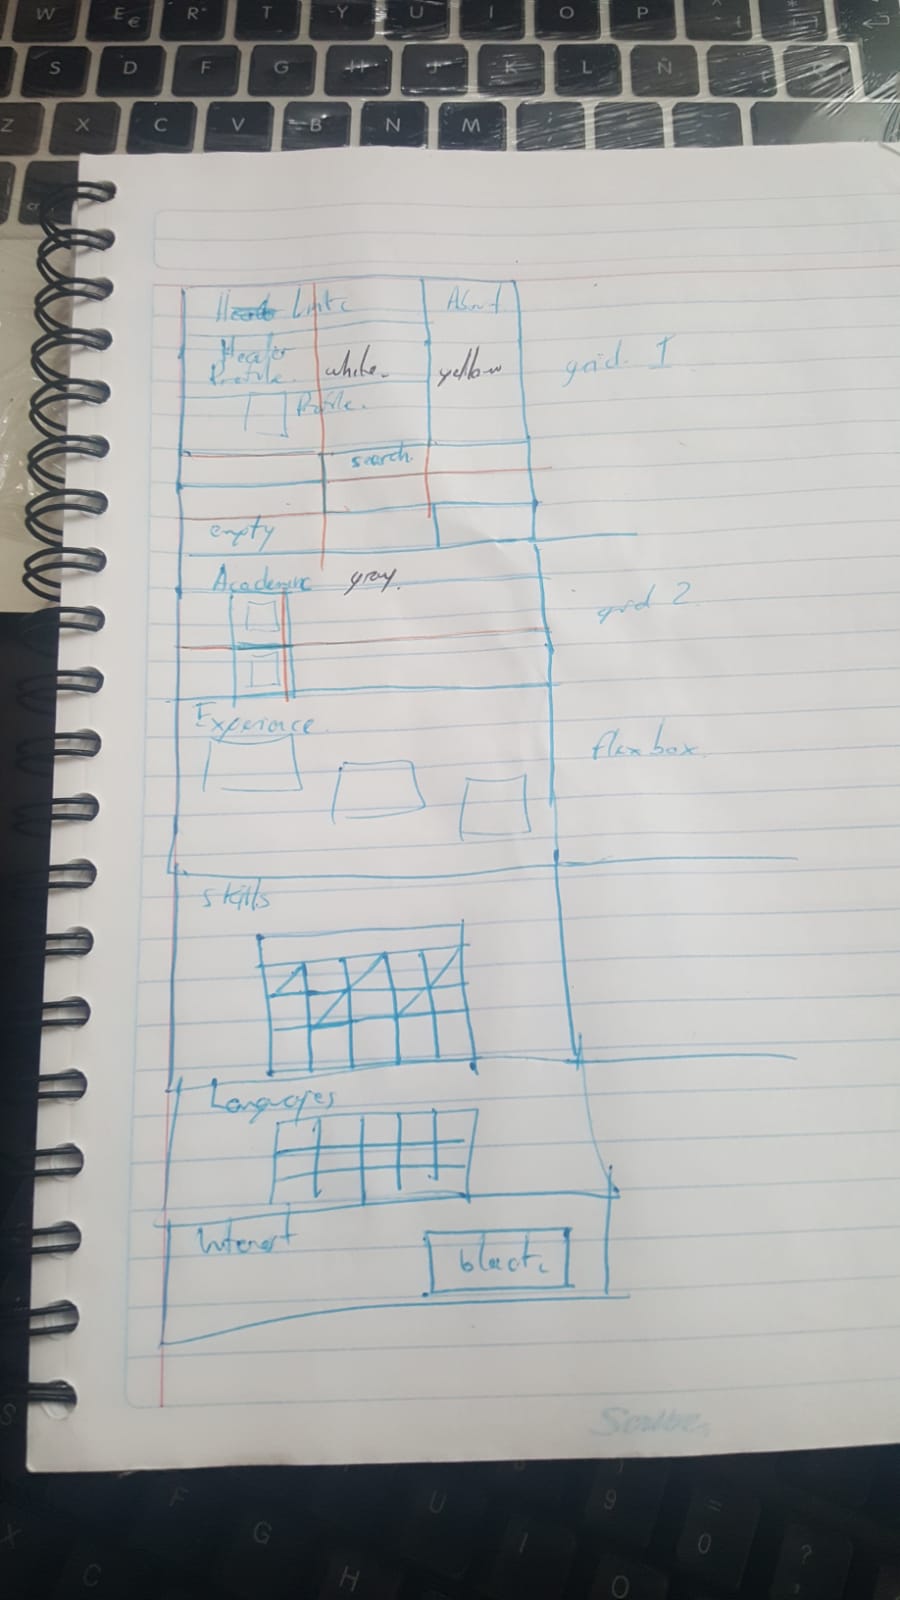 W E € R T Y U I O P
S D F G H J K L Ñ
Z X C V B N M
Links About
Header
Profile. white. yellow grid 1
Profile.
search.
empty
Academic gray.
grid 2
Experience
flexbox
skills
Languages
Interest
black
Scribe
F U 9 =
X G I O ?
C H O